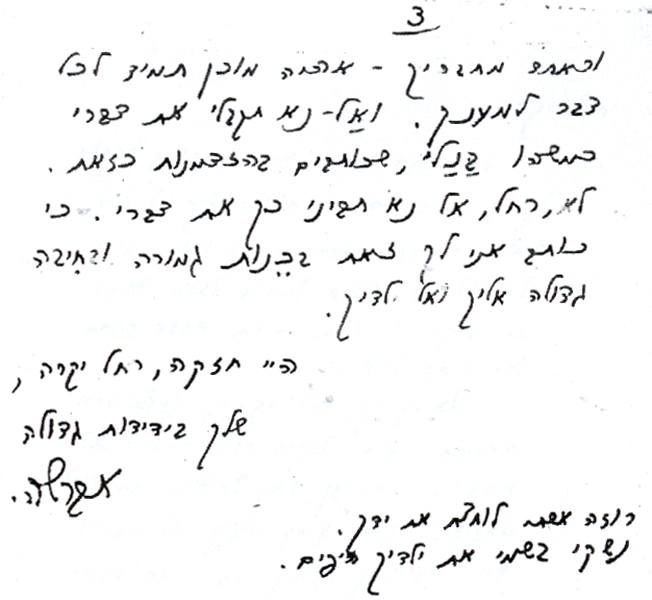 3
וכאחד מחבריך - אהיה מוכן תמיד לכל
דבר למענך. ואַל-נא תקבלי את דברי
כמשהו בַּנַלי, שכותבים בהזדמנות כזאת.
לא, רחל, אל נא תביני כך את דברי. כי
כותב אני לך זאת בכֵנות גמורה ובחִיבה
גדולה אליך ואל ילדיך.
היי חזקה, רחל יקרה,
שלך בידידות גדולה
אברשה.
רוזה אשתי לוחצת את ידך.
נשקי בשמי את ילדיך היפים.